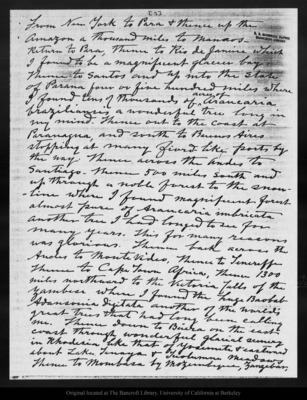 From New York to Para & thence up the
Amazon a thousand miles to Manaos.
Return to Para, thence to Rio de Janeiro which
I found to be a magnificent glacier bay
Thence to Santos and up into the State
of Parana four or five hundred miles where
I found tens of thousands of acres of Araucaria
Braziliensis a wonderful tree long in
my mind. Thence out to the coast at
Paranagua, and south to Buenos Aires
stopping at many fiord like ports by
the way. Thence across the Andes to
Santiago. thence 500 miles south and
up through a noble forest to the snow-
line where I found magnificent forest
almost pure of Araucaria imbricata
another tree I had longed to see for
many years. This for many reasons
was glorious. Thence back across the
Andes to Monte Video, thence to Teneriffe
thence to Cape Town Africa, thence 1300
miles northward to the Victoria falls of the
Zambesi where I found the huge Baobab
Adansonia digitata another of the world's
great trees that had long been calling
me. Thence down to Beira on the east
coast through wonderful glacial scenery
in Rhodesia like that of Yosemite eastward
about Lake Tenaya & Tuolumne Meadows.
Thence to Mombasa by Mozambique, Zanzibar,
Original located at The Bancroft Library, University of California at Berkeley